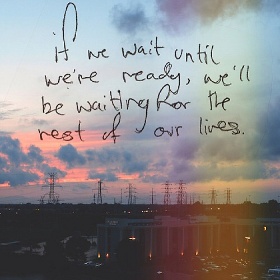 if we wait until
we're ready, we'll
be waiting for the
rest of our lives.